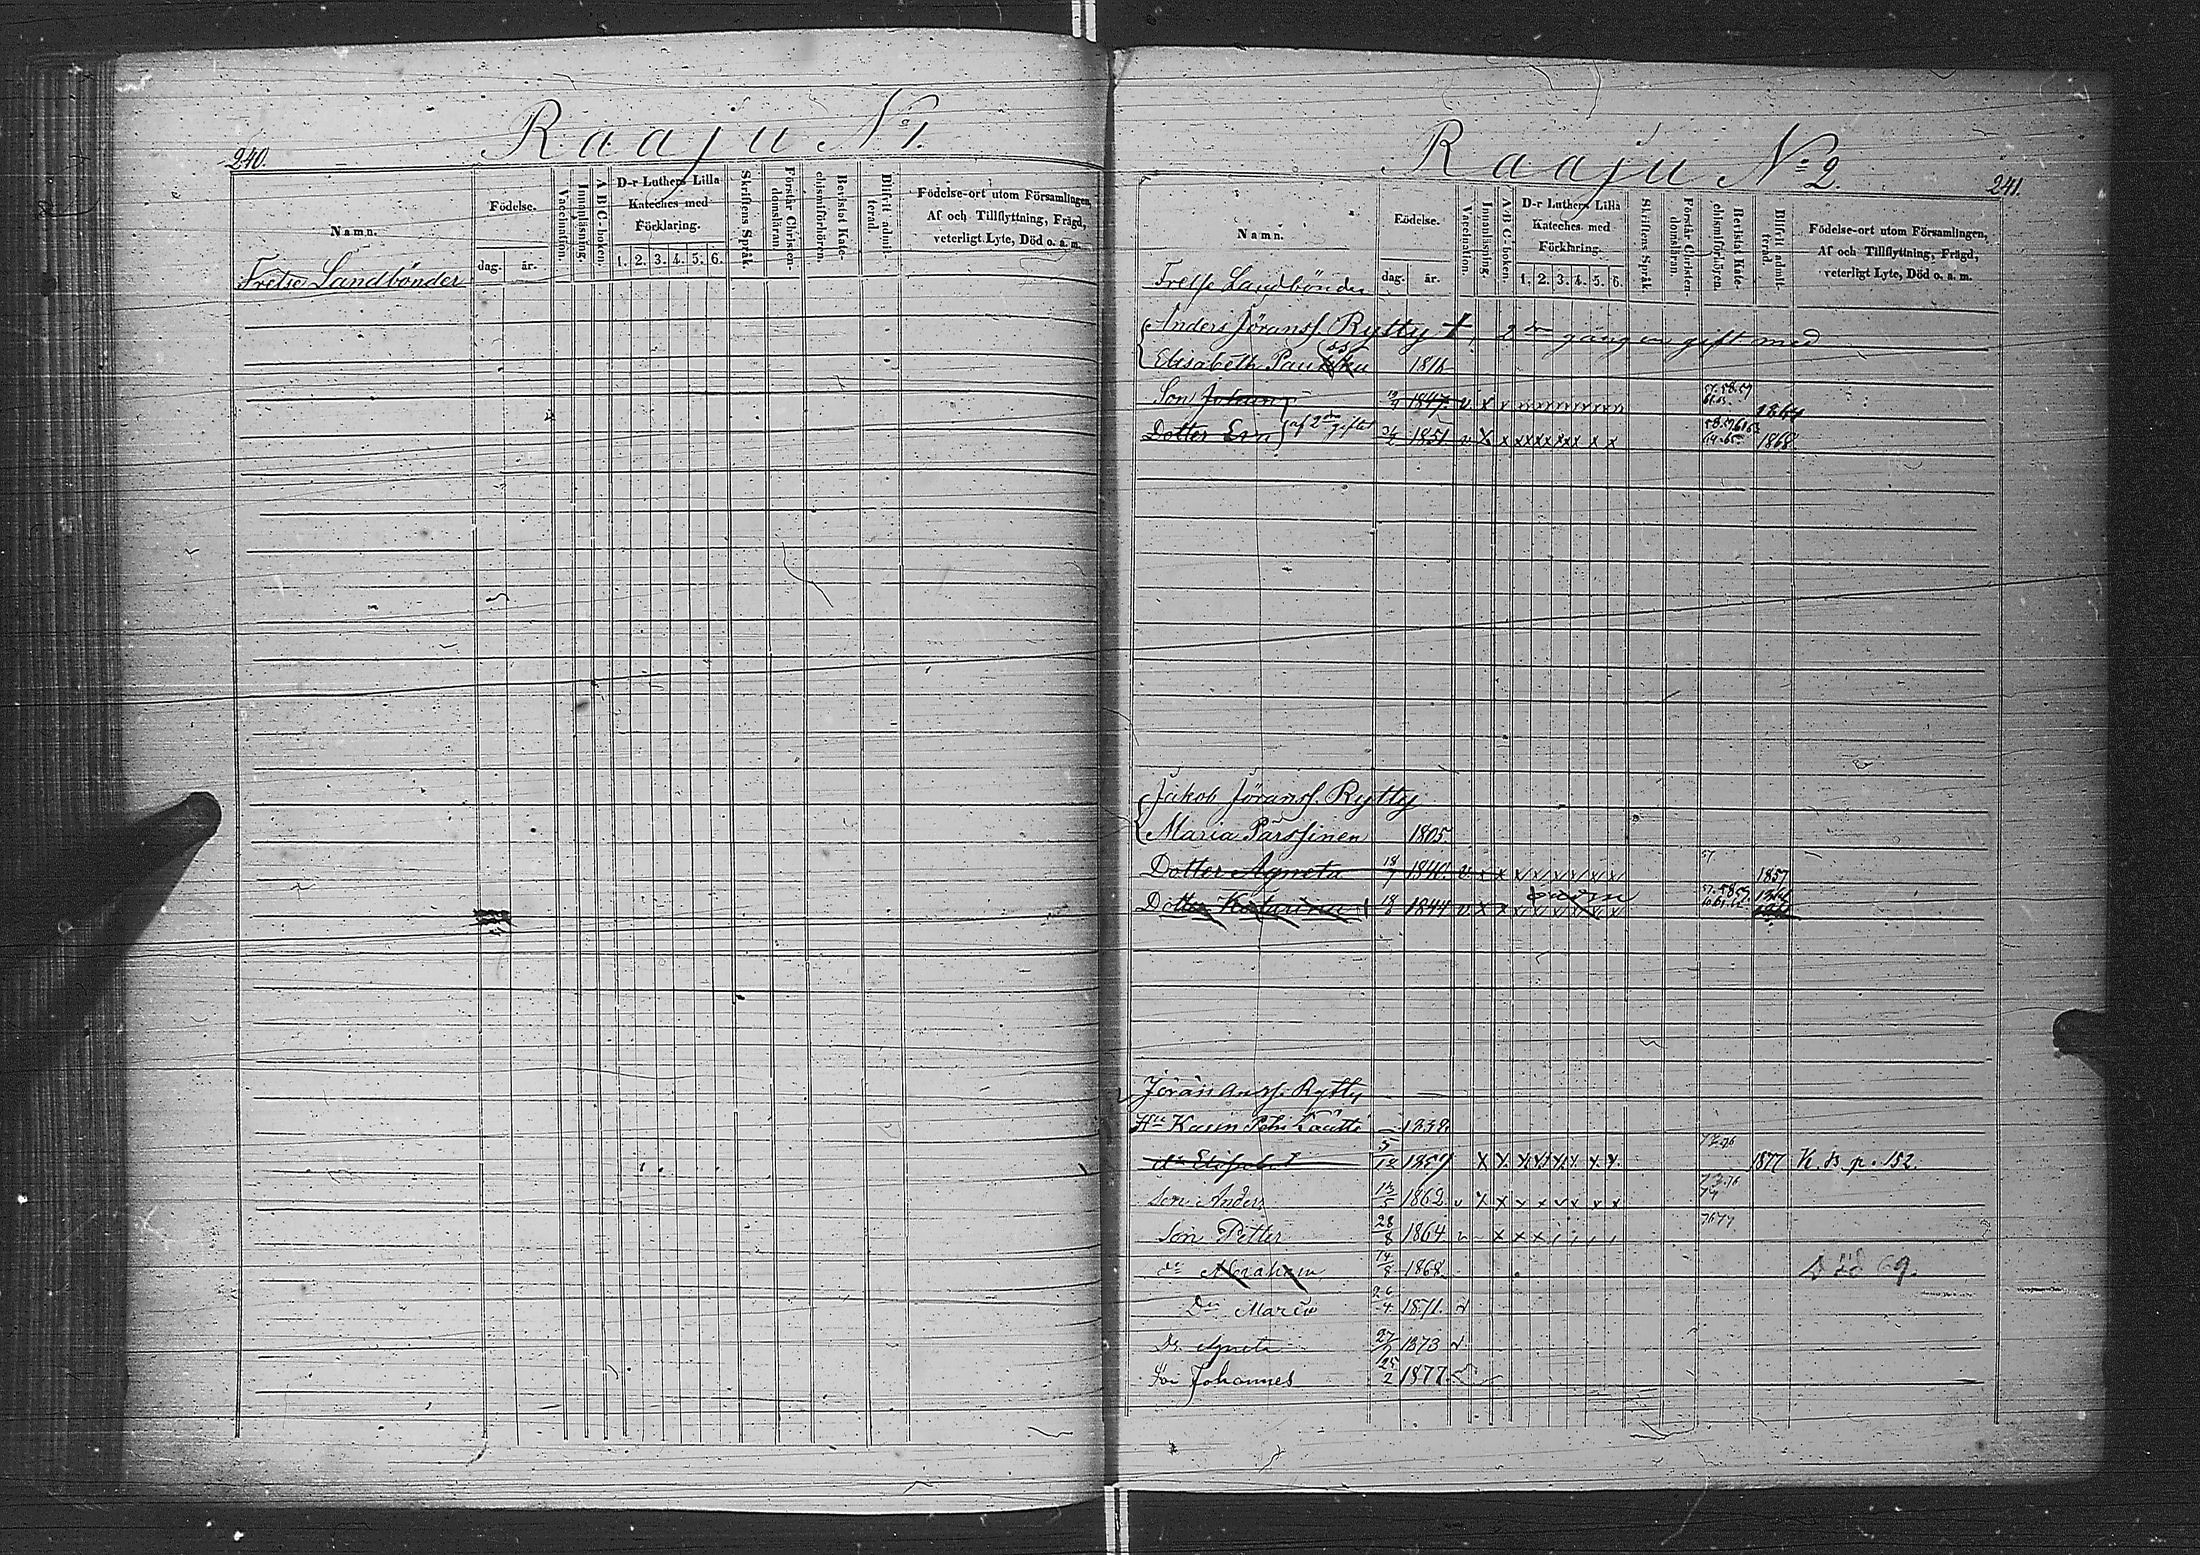 240.
Raaju No 1.
Namn.
Födelse.
dag.
år.
Vaccination.
Innanläsning.
A B C-boken.
D-r Luthers Lilla
Kateches med
Förklaring.
1. 2. 3. 4. 5. 6.
Skriftens Språk.
Förstår Christen-
domsläran.
Bevistat Kate-
chismiförhören.
Blifvit admit-
terad.
Födelse-ort utom Församlingen,
Af och Tillflyttning, Frägd,
veterligt Lyte, Död o. s. m.
Frelse Landbönder
Raaju No 2.
241.
Namn.
Födelse.
dag.
år.
Vaccination.
Innanläsning.
A B C-boken.
D-r Luthers Lilla
Kateches med
Förklaring.
1. 2. 3. 4. 5. 6.
Skriftens Språk.
Förstår Christen-
domsläran.
Bevistat Kate-
chismiförhören.
Blifvit admit-
terad.
Födelse-ort utom Församlingen,
Af och Tillflyttning, Frägd,
veterligt Lyte, Död o. s. m.
Frelse Landbönder
Anders Jöranss. Rytty †, 2dra gången gift med
Elisabeth 1816
Son Johan 1847. v x 57.58.59 1864
Dotter Eva af 2dra giftet 1851 v x x x x x x x x x x 1868
Jakob Jöranss. Rytty
Maria Pärssinen 1805.
Dotter Agneta 18/7 1840. v x x 57 1857
Dotter Katarina 1844 v x x 57.58.59
Jöran Anss. Rytty
Hu Karin 1838.
dr Elisabet 5/12 1859 x x 1877 K. B. p. 152.
son Anders 1862 v x x x x x x x
son Petter 28/8 1864 v x x x 7677
dn Abraham 14/8 1868 Död 69.
Dr Maria 26/4 1871. v
Dr. Agneta 1873 v
Son Johannes 25/2 1877.